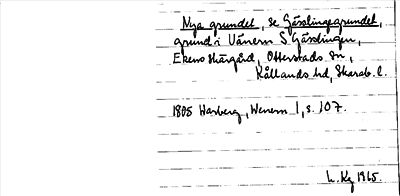 Nya grundet, se Gässlingegrundet,
grund i Vänern S Gässlingen,
Ekens skärgård, Otterstads sn,
Kållands hd, Skarab. l.
1805 Warberg, Wenern 1, s. 107.
L. Kg 1965.